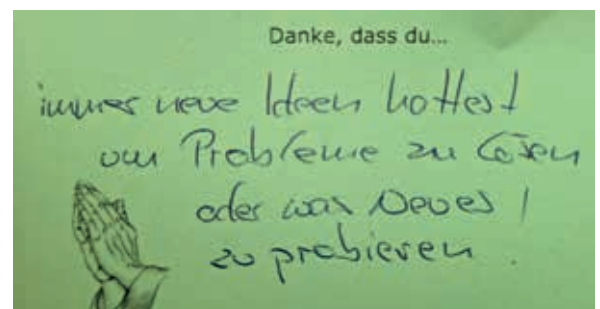 Danke, dass du...
immer neue Ideen hattest
um Probleme zu lösen
oder was Neues
zu probieren.